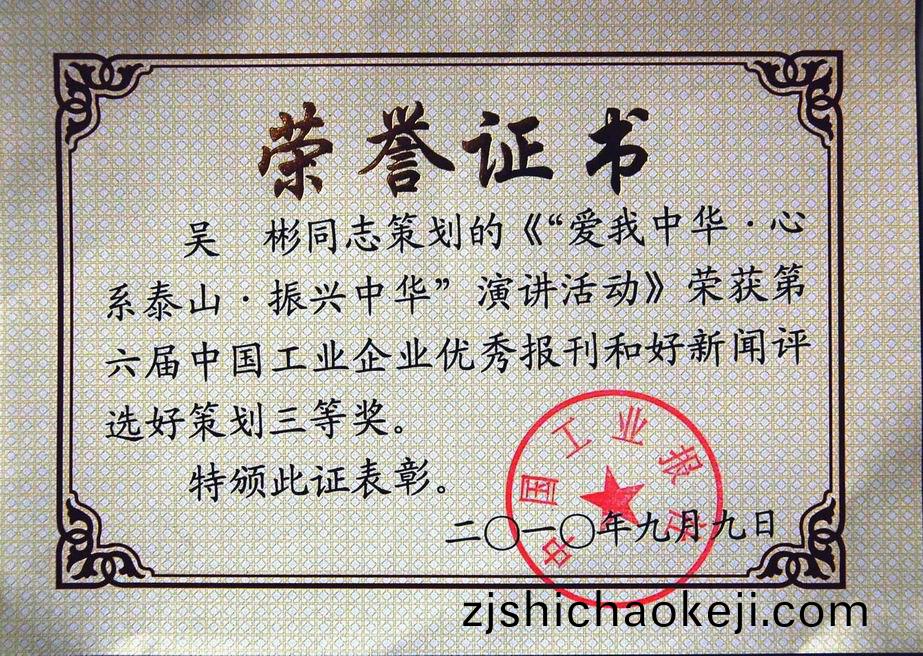 荣誉证书
吴 彬同志策划的《“爱我中华·心
系泰山·振兴中华”演讲活动》荣获第
六届中国工业企业优秀报刊和好新闻评
选好策划三等奖。
特颁此证表彰。
中国工业报社
二〇一〇年九月九日
zjshichaokeji.com